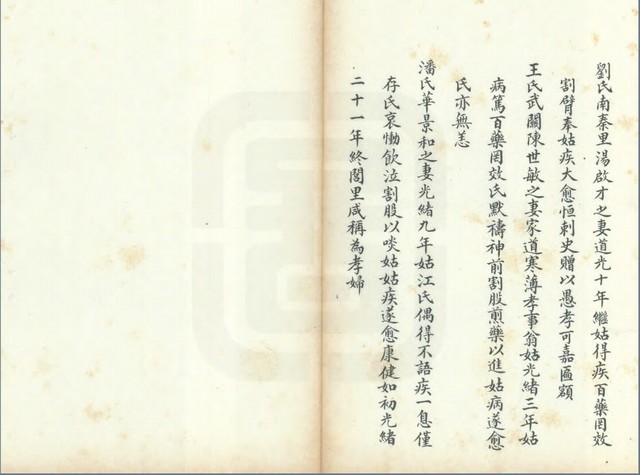 劉氏南秦里湯啟才之妻道光十年繼姑得疾百藥罔效
割臂奉姑疾大愈恒刺史贈以愚孝可嘉匾額
王氏武關陳世敏之妻家道寒薄孝事翁姑光緒三年姑
病篤百藥罔效氏默禱神前割股煎藥以進姑病遂愈
氏亦無恙
潘氏華景和之妻光緒九年姑江氏偶得不語疾一息僅
存氏哀慟飲泣割股以啖姑姑疾遂愈康健如初光緒
二十一年終閭里咸稱為孝婦